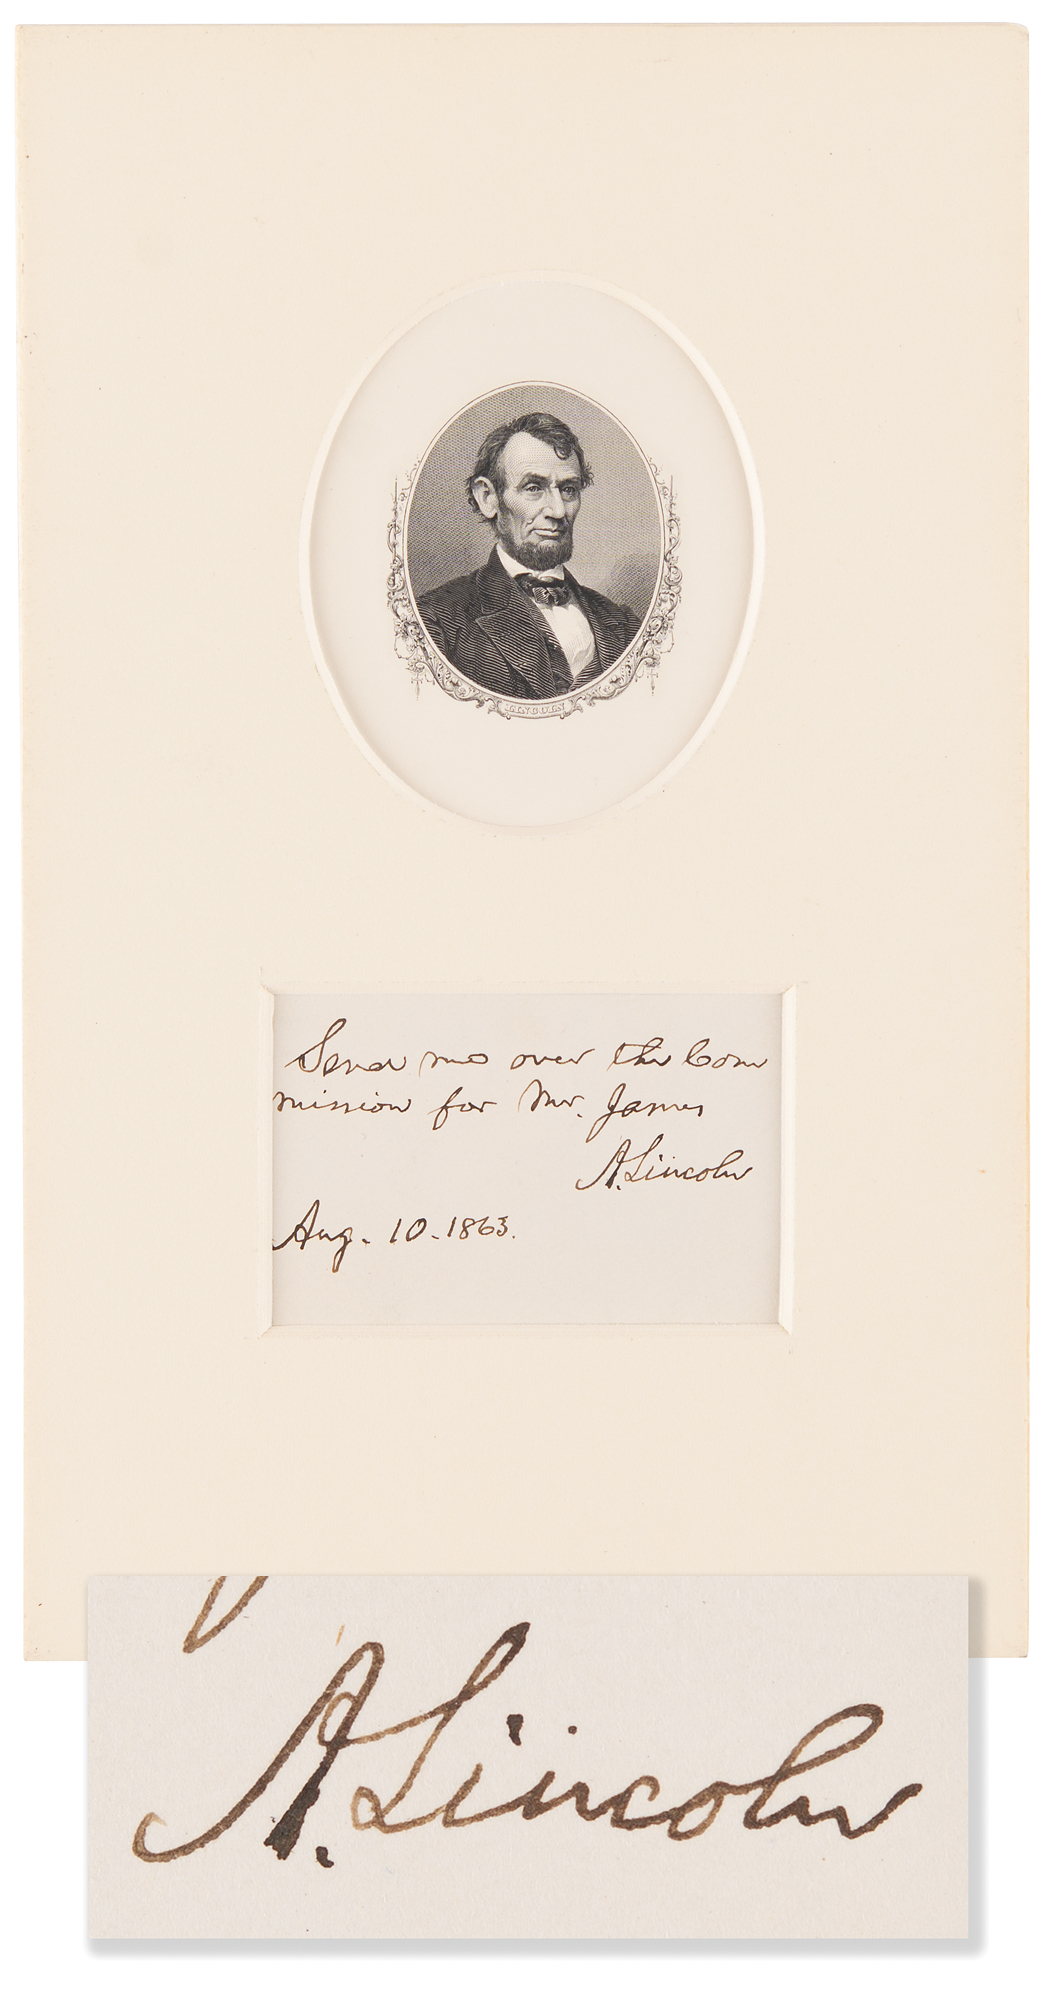 LINCOLN
Send me over the Com
mission for Mr. James
A. Lincoln
Aug. 10. 1863.
A. Lincoln